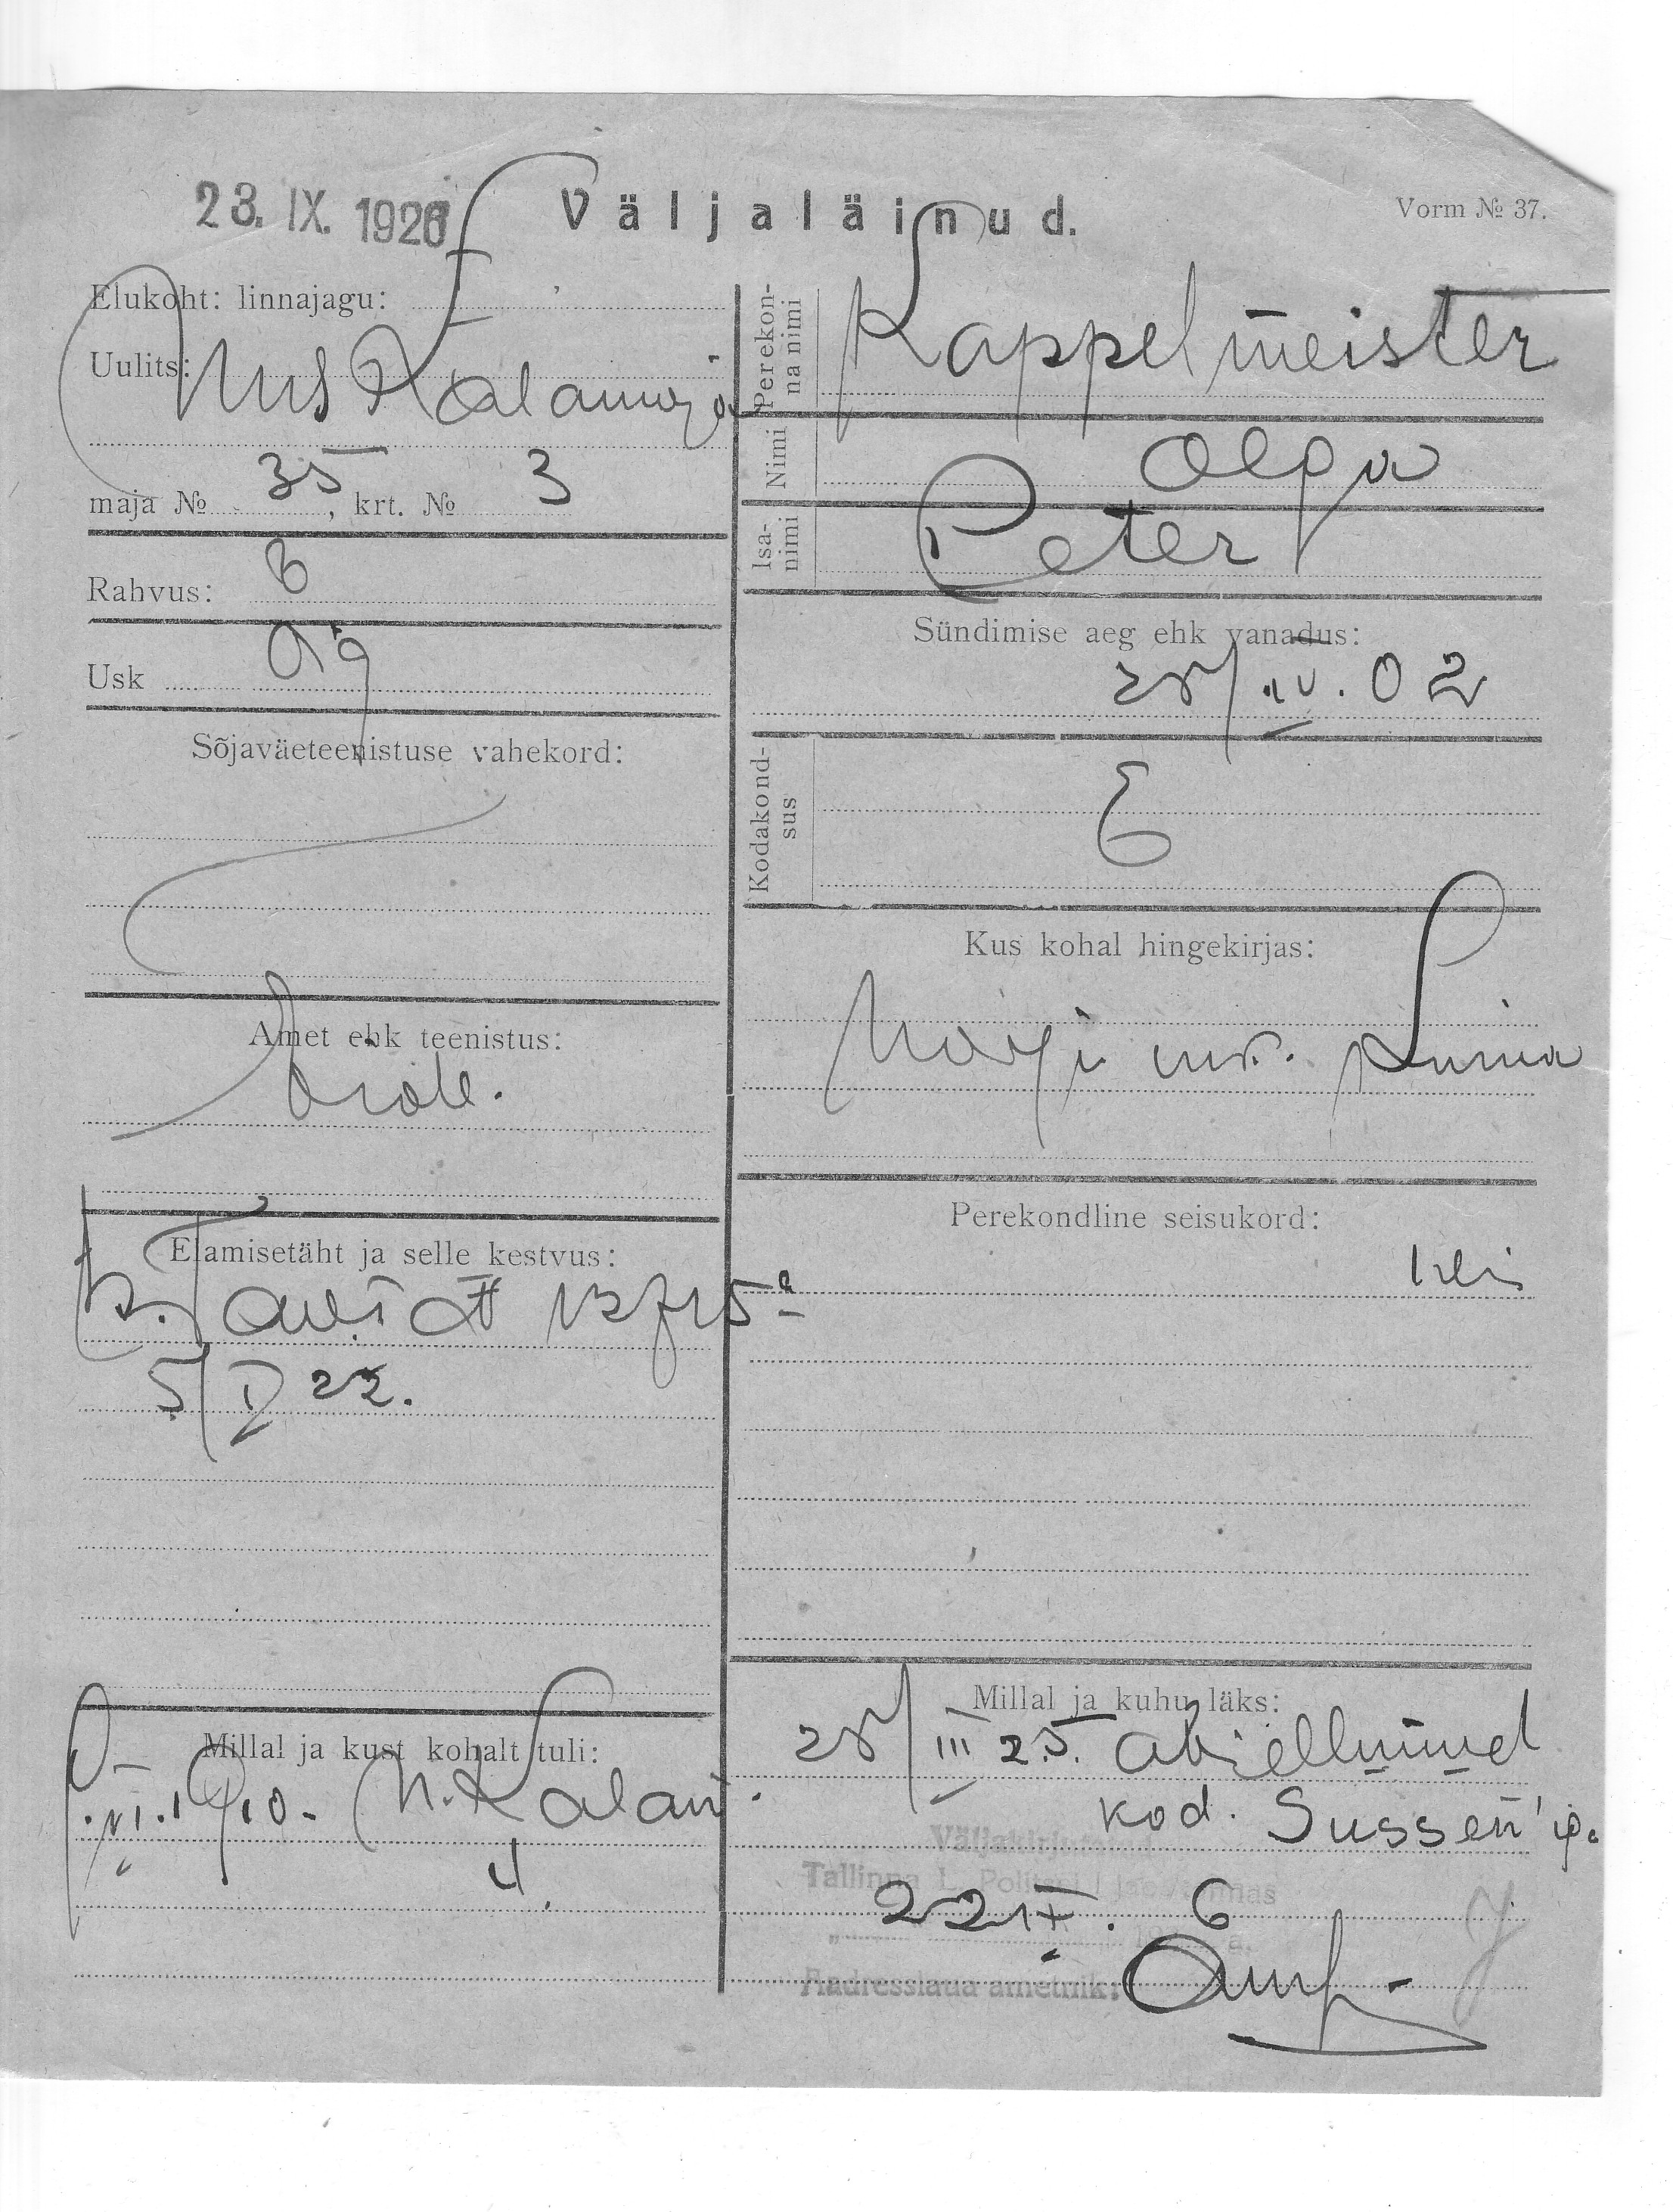 23. IX. 1926
Väljaläinud.
Vorm № 37.
Elukoht: linnajagu:
Uulits: Uus Kalamaja
maja № 35, krt. № 3
Rahvus: E
Usk
Sõjaväeteenistuse vahekord:
Amet ehk teenistus:
Elamisetäht ja selle kestvus:
5/ 22.
Millal ja kust kohalt tuli:
Kalam.
4.
Perekonna nimi Kappelmeister
Nimi Olga
Isanimi Peter
Sündimise aeg ehk vanadus:
25/IV. 02
Kodakondsus E
Kus kohal hingekirjas:
Harju mk.
Perekondline seisukord:
Millal ja kuhu läks:
25/III 25. abiellunud
kod. Sussen'ig.
Väljakirjutatud
Tallinna L. Politsei I jaoskonnas
22 IX. 6
Aadresslaua ametnik: